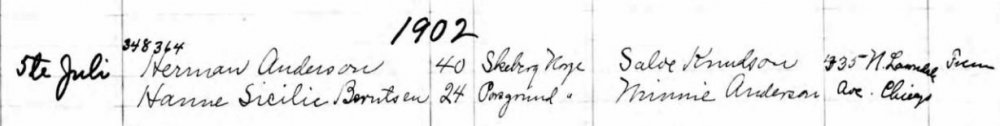 1902
348364
5te Juli Herman Anderson 40 Skeberg Norge Salve Knudson 335 N.
Hanne Sicilie Berntsen 24 Porsgrund " Minnie Anderson Ave. Chicago